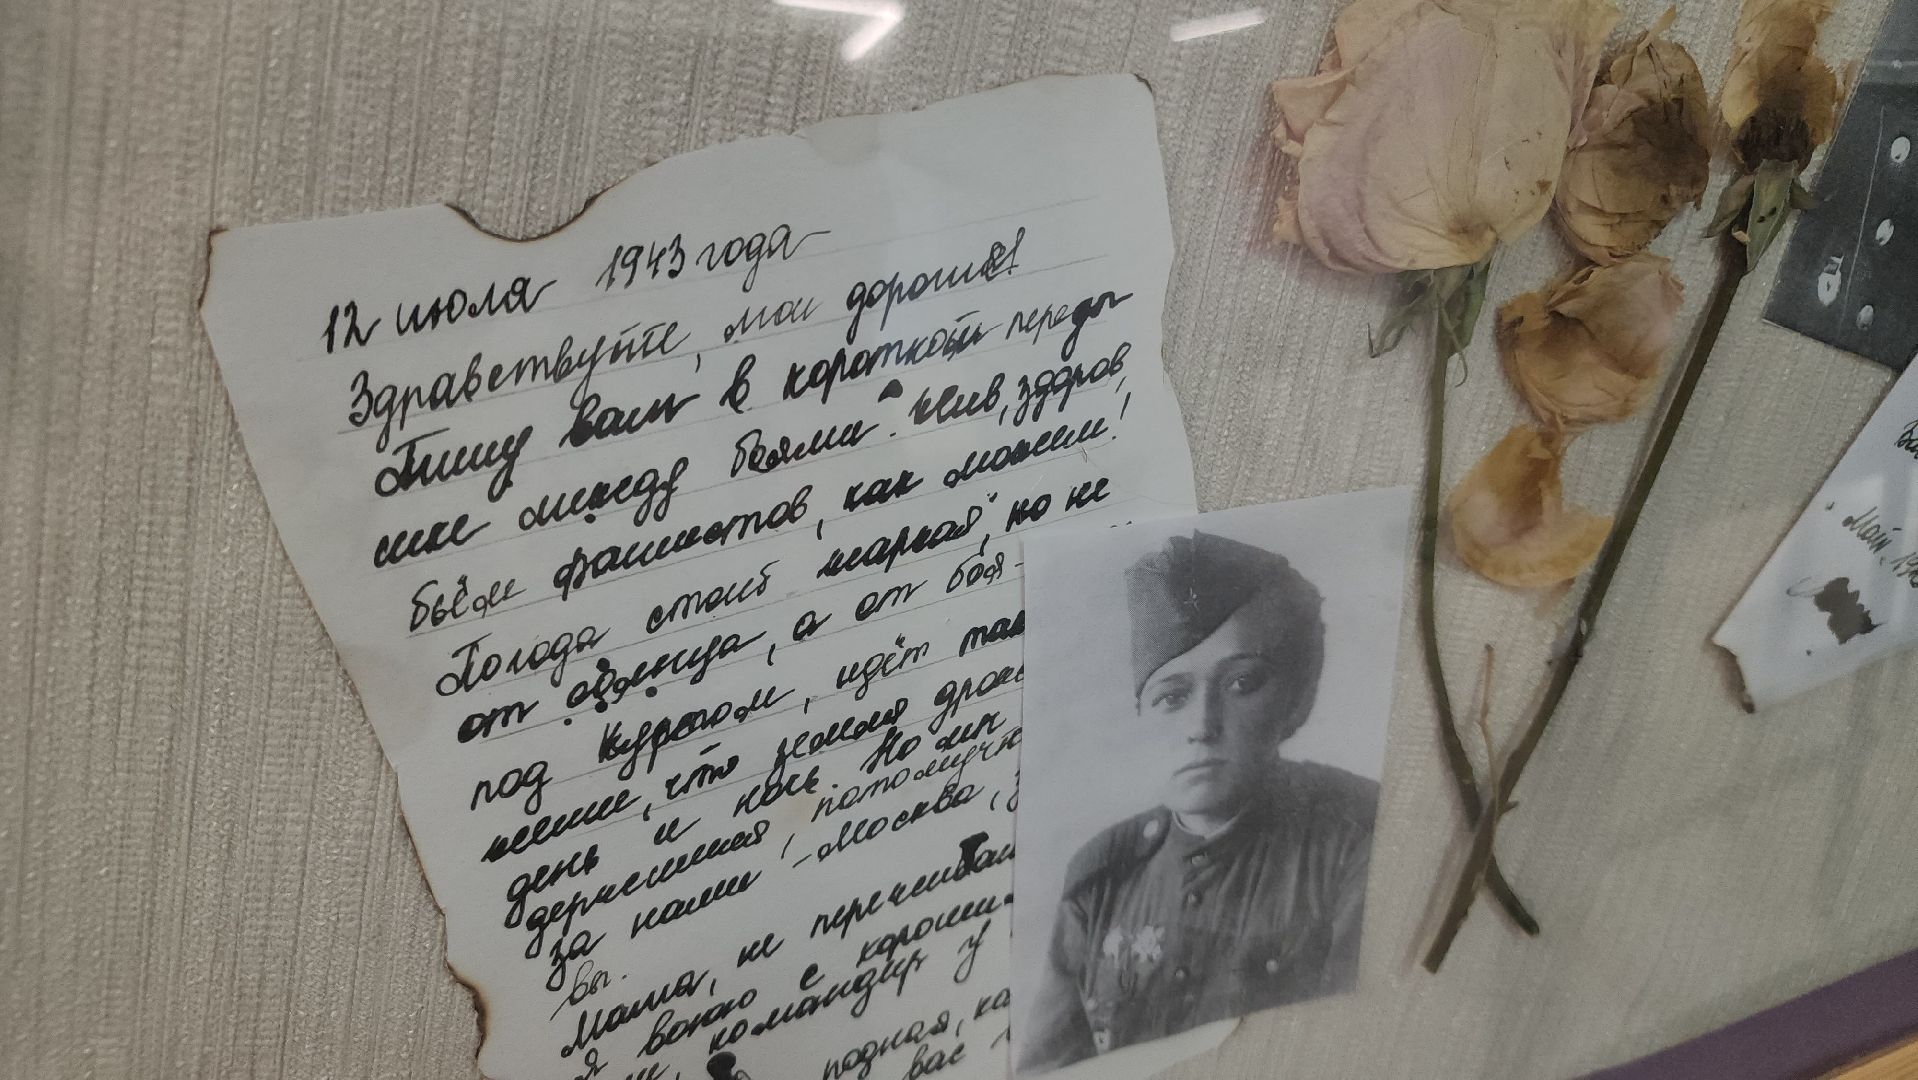 12 июля 1943 года
Здравствуйте, мои дорогие!
Пишу вам в короткой переды
шке между боями. Жив, здоров,
бьём фашистов, как можем!
Погода стоит жаркая, но не
от солнца, а от боя-
под Курском, идёт
что земля
день и ночь. Но мы
держимся, потому что
за нами - Москва,
вы.
Мама, не пережива
Я воюю с хороши
командир у
родная,
вас
Май